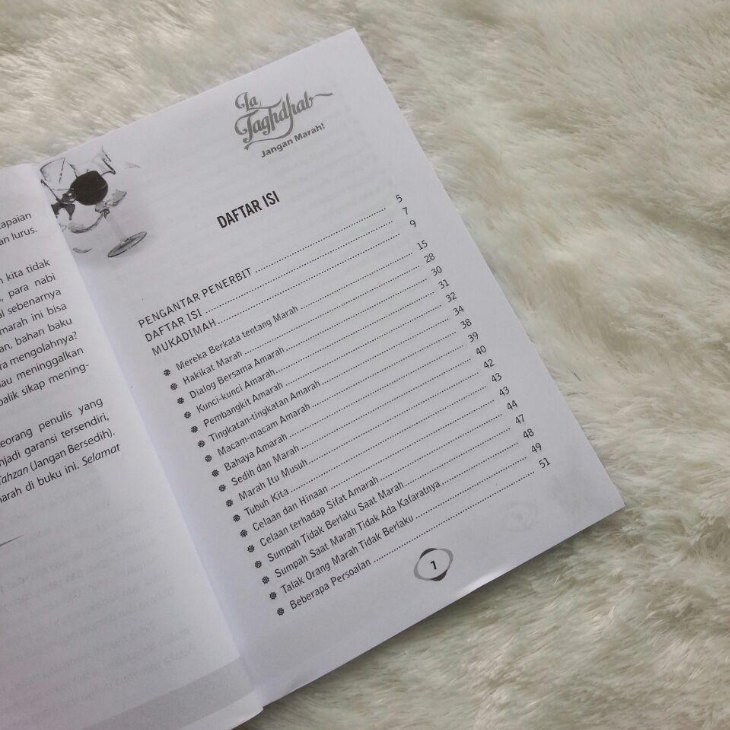 lurus.
kita tidak
para nabi
sebenarnya
marah ini bisa
bahan baku
mengolahnya?
meninggalkan
sikap mening-
penulis yang
garansi tersendiri,
Tahzan (Jangan Bersedih).
di buku ini. Selamat
La
Taghdhab
Jangan Marah!
DAFTAR ISI
PENGANTAR PENERBIT 5
DAFTAR ISI 7
MUKADIMAH 9
Mereka Berkata tentang Marah 15
Hakikat Marah 28
Dialog Bersama Amarah 30
Kunci-kunci Amarah 31
Pembangkit Amarah 32
Tingkatan-tingkatan Amarah 34
Macam-macam Amarah 38
Bahaya Amarah 39
Sedih dan Marah 40
Marah Itu Musuh 42
Tubuh Kita 43
Celaan dan Hinaan 43
Celaan terhadap Sifat Amarah 44
Sumpah Tidak Berlaku Saat Marah 47
Sumpah Saat Marah Tidak Ada Kafaratnya 48
Talak Orang Marah Tidak Berlaku 49
Beberapa Persoalan 51
7